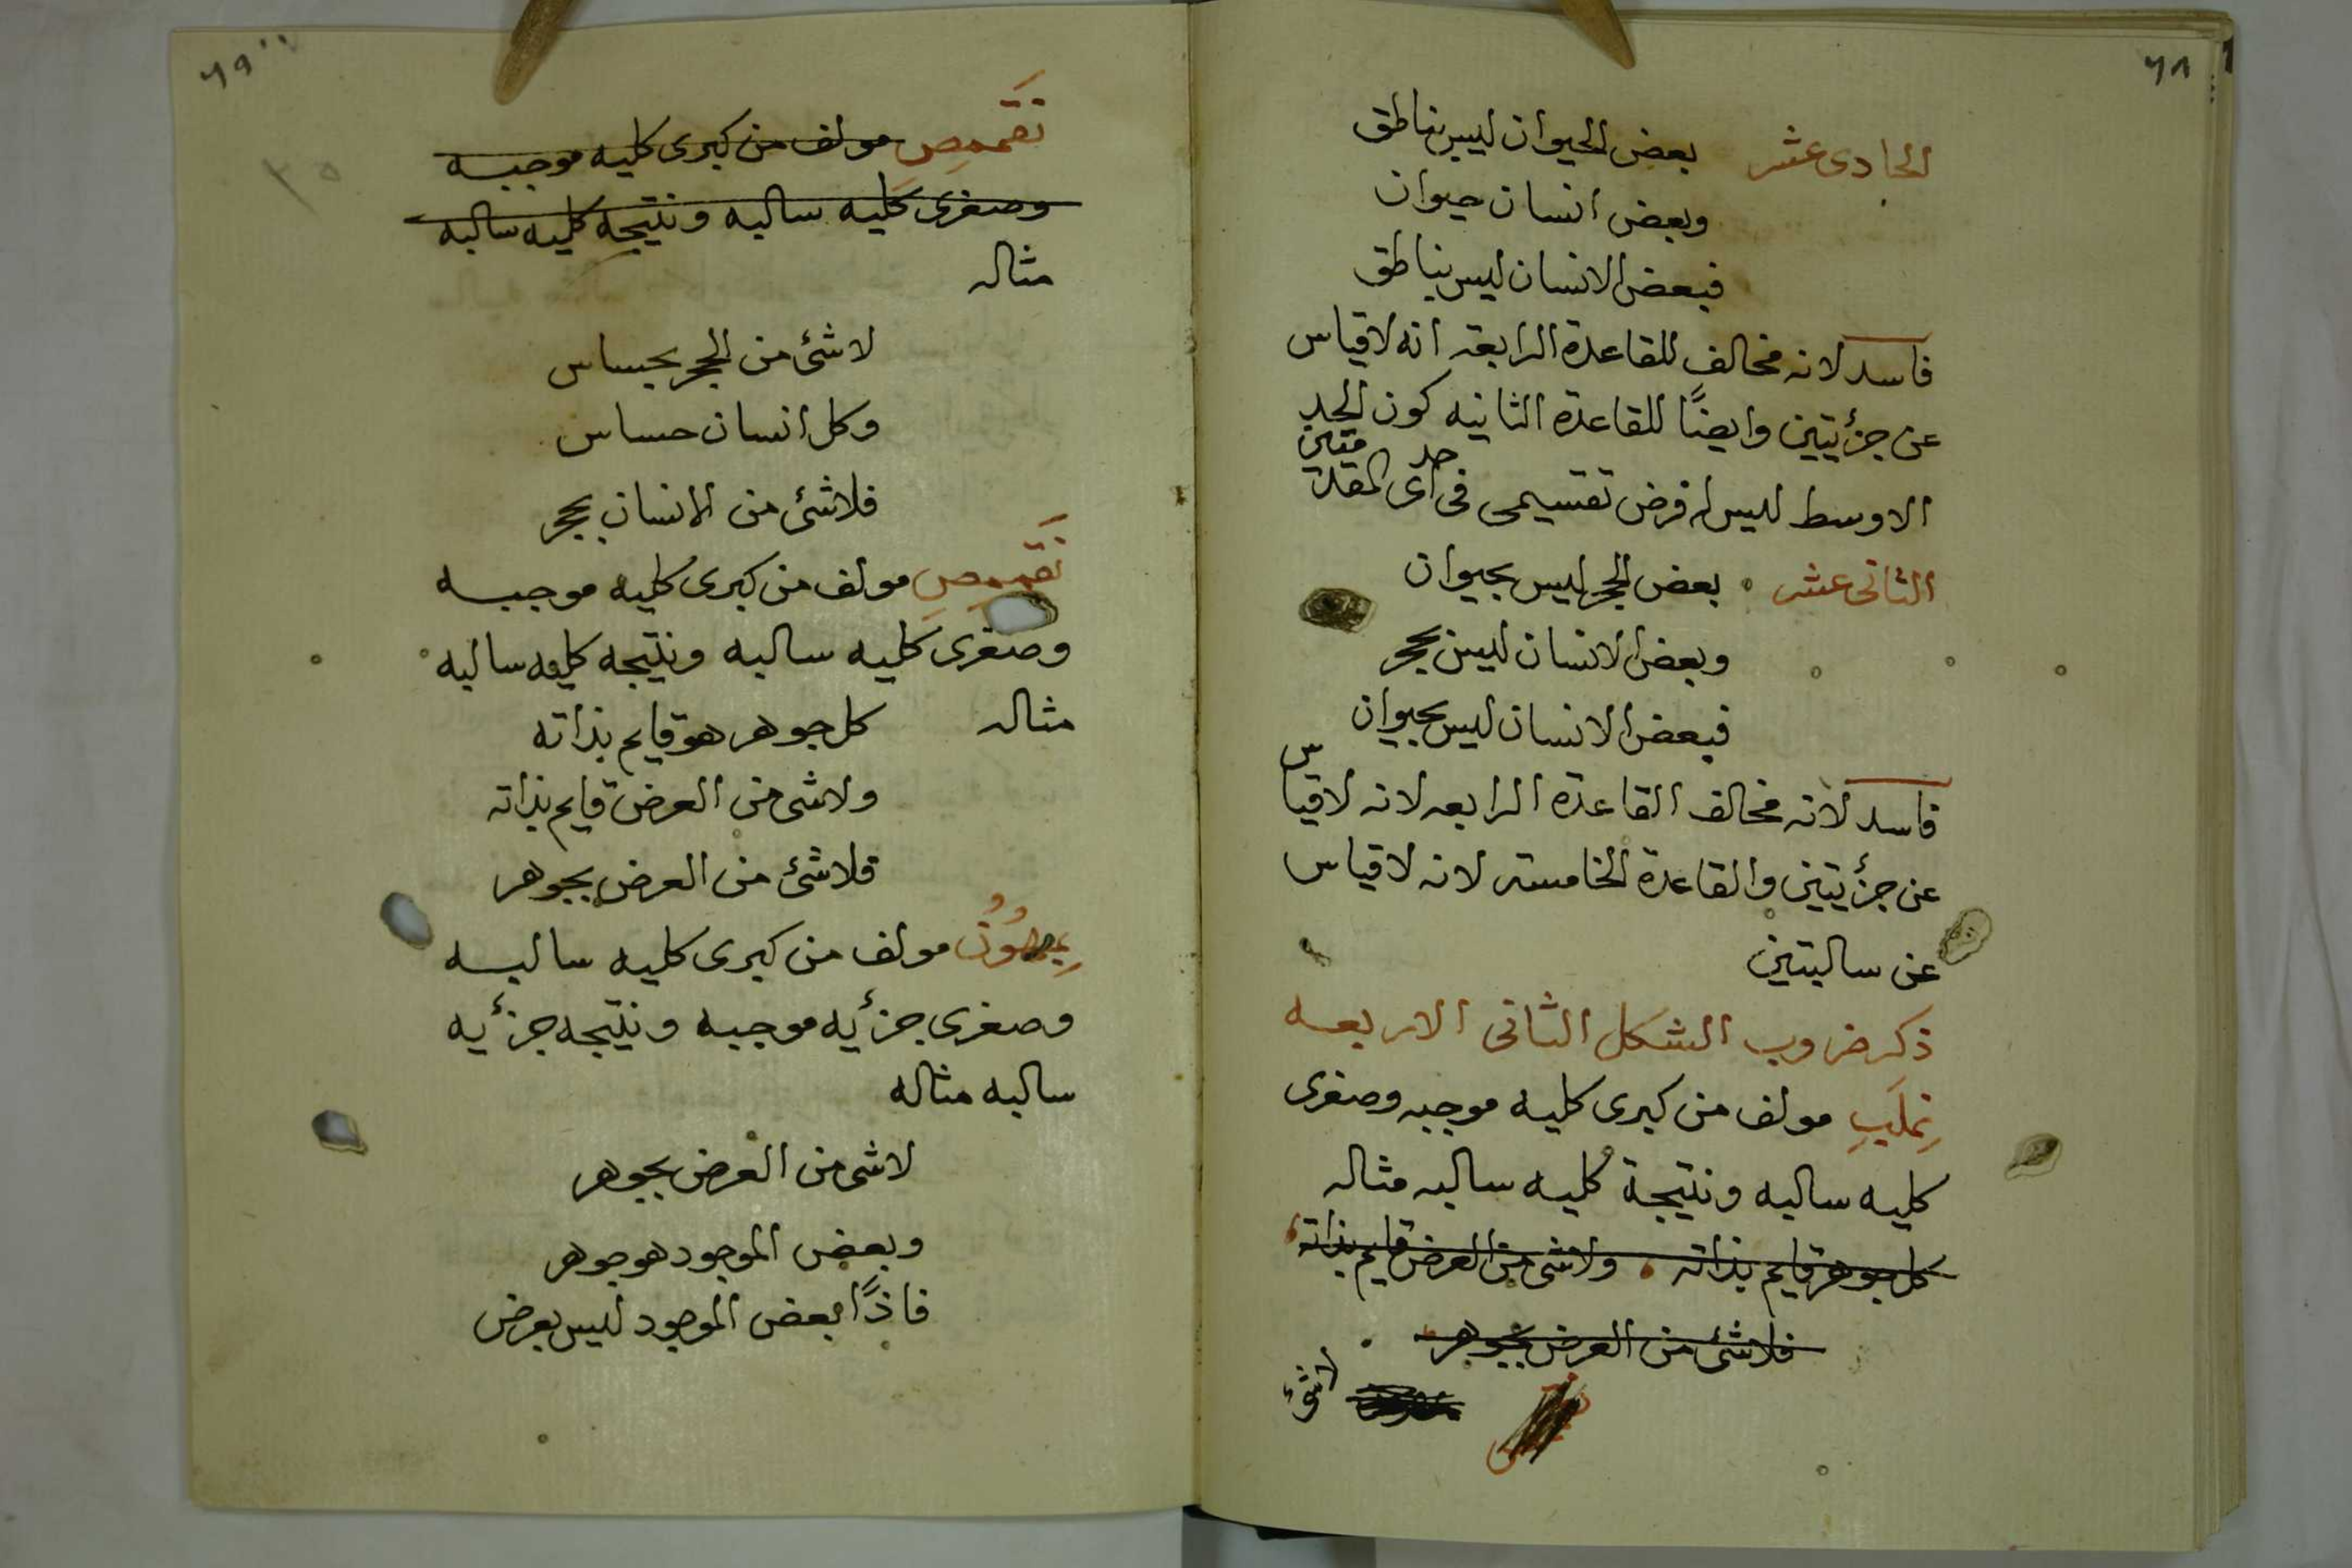 ٦٨
الحادى عشر بعض الحيوان ليس بناطق
وبعض انسان حيوان
فبعض الانسان ليس بناطق
فاسد لانه مخالف للقاعدة الرابعة انه لا قياس
عن جزأيتين وايضًا للقاعدة الثانيه كون الحد
الاوسط ليس له فرض تقسيمى فى احد اى المقدمتين
الثانى عشر بعض الحجر ليس بحيوان
وبعض الانسان ليس بحجر
فبعض الانسان ليس بحيوان
فاسد لانه مخالف القاعدة الرابعه لانه لا قياس
عن جزأيتين والقاعدة الخامسة لانه لا قياس
عن سالبتين
ذكر ضروب الشكل الثانى الاربعه
مولف من كبرى كليه موجبه وصغرى
كليه سالبه ونتيجة كليه سالبه مثاله
كل جوهر قايم بذاته ولاشى من العرض قايم بذاته
فلاشئ من العرض بجوهر
لاشئ
٦٩
٣٥
مولف من كبرى كليه موجبه
وصغرى كليه سالبه ونتيجه كليه سالبه
مثاله
لاشئ من الحجر بحساس
وكل انسان حساس
فلاشئ من الانسان بحجر
مولف من كبرى كليه موجبه
وصغرى كليه سالبه ونتيجه كليه سالبه
مثاله كل جوهر هو قايم بذاته
ولاشى من العرض قايم بذاته
فلاشئ من العرض بجوهر
مولف من كبرى كليه سالبه
وصغرى جزأيه موجبه ونتيجه جزأيه
سالبه مثاله
لاشى من العرض بجوهر
وبعض الموجود هو جوهر
فاذًا بعض الموجود ليس بعرض